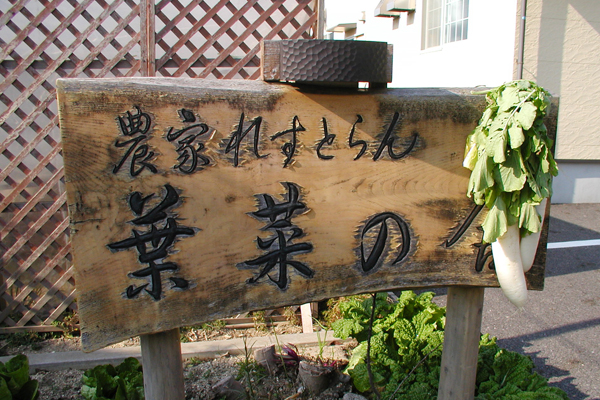 農家れすとらん
葉菜の